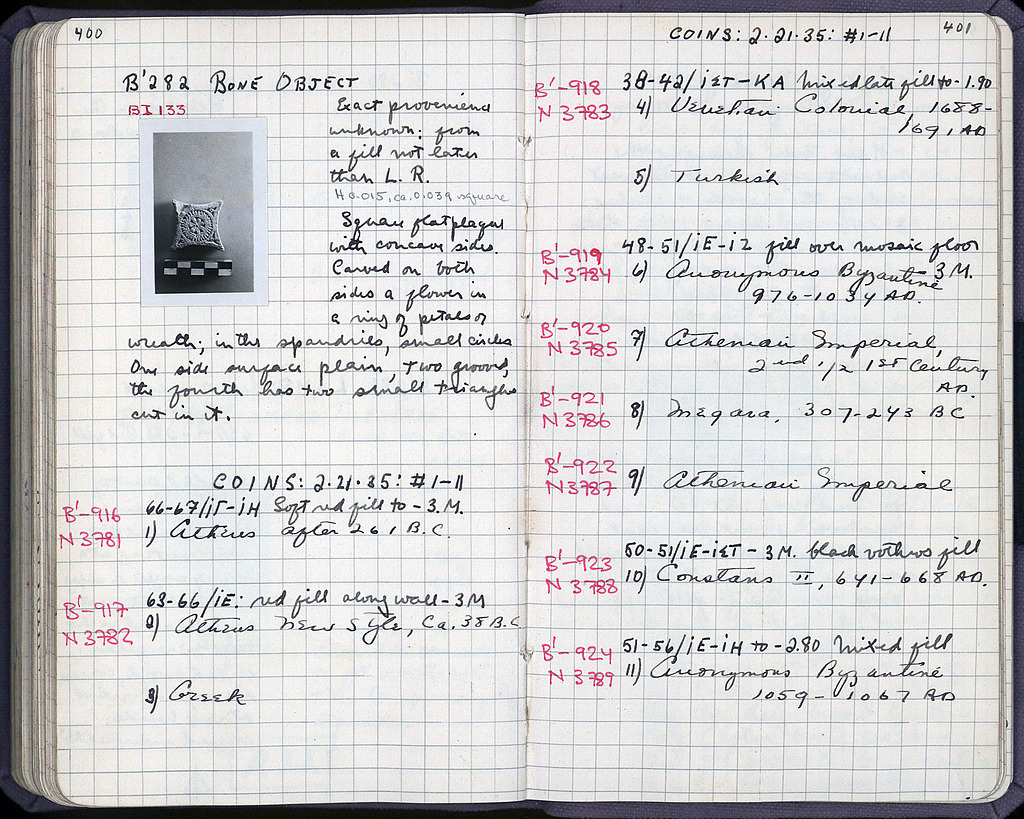 400
B'282 BONE OBJECT
BI 133
Exact provenience
unknown; from
a fill not later
than L. R.
H 0.015, ca. 0.039 square
Square flat plaque
with concave sides.
Carved on both
sides a flower in
a ring of petals or
wreath; in the spandrils, small circles
One side surface plain, two grooved,
the fourth has two small triangles
cut in it.
COINS: 2·21·35: #1-11
B'-916
N 3781
66-67/ΙΓ-ΙΗ Soft red fill to -3.M.
1) Athens after 261 B.C.
B'-917
N 3782
63-66/ΙΕ: red fill along wall -3M
2) Athens New Style, Ca. 38 B.C.
3) Greek
401
COINS: 2·21·35: #1-11
B'-918
N 3783
38-42/ΙΣΤ-ΚΑ Mixed late fill to -1.90
4) Venetian Colonial, 1688-
1691 AD
5) Turkish
B'-919
N 3784
48-51/ΙΕ-ΙΖ fill over mosaic floor
-3 M.
6) Anonymous Byzantine
976-1034 AD.
B'-920
N 3785
7) Athenian Imperial,
2nd 1/2 1ST Century
AD.
B'-921
N 3786
8) Megara, 307-243 BC
B'-922
N 3787
9) Athenian Imperial
B'-923
N 3788
50-51/ΙΕ-ΙΣΤ -3M. black vothros fill
10) Constans II, 641-668 AD.
B'-924
N 3789
51-56/ΙΕ-ΙΗ to -2.80 Mixed fill
11) Anonymous Byzantine
1059-1067 AD